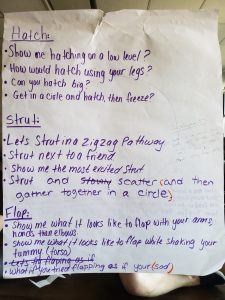 Hatch:
• Show me hatching on a low level?
• How would hatch using your legs?
• Can you hatch big?
• Get in a circle and hatch, then freeze?
Strut:
• Let's Strut in a Zigzag Pathway
• Strut next to a friend
• Show me the most excited Strut
• Strut and scatter (and then
gather together in a circle)
Flap:
• Show me what it looks like to flap with your arms,
hands then elbows
• Show me what it looks like to flap while shaking your
tummy (torso)
• Let's try flapping as if
• What if you tried flapping as if your (sad)